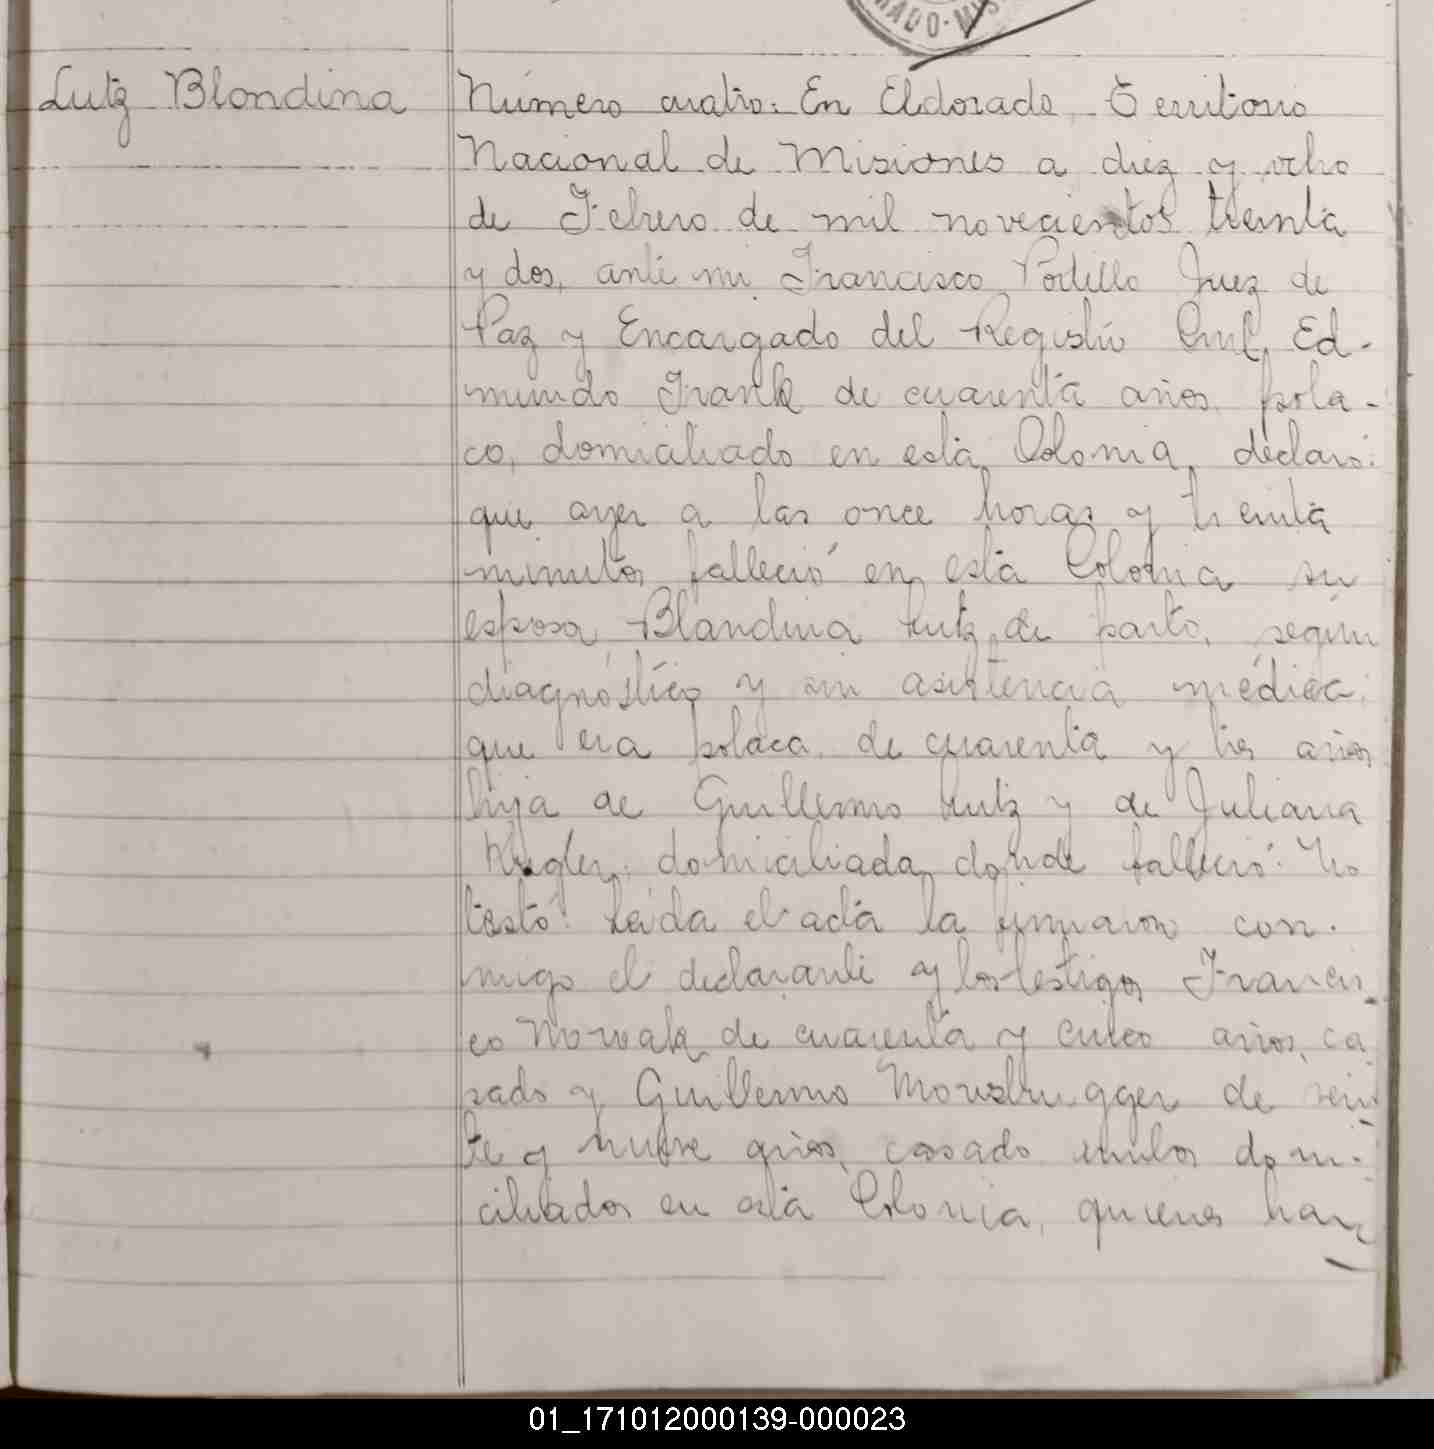 RADO-MIS
Lutz Blondina
Número cuatro: En Eldorado, Territorio
Nacional de Misiones a diez y ocho
de Febrero de mil novecientos treinta
y dos, ante mi Francisco Portillo Juez de
Paz y Encargado del Registro Civil, Ed-
mundo Frank de cuarenta años, pola-
co, domiciliado en esta Colonia, declaró:
que ayer a las once horas y treinta
minutos falleció en esta Colonia su
esposa Blandina Lutz, de parto, según
diagnóstico y sin asistencia médica:
que era polaca, de cuarenta y tres años
hija de Guillermo Lutz y de Juliana
domiciliada donde falleció. No
testó. Leida el acta la firmaron con-
migo el declarante y los testigos Francis-
co Nowak de cuarenta y cinco años, ca
sado y Guillermo de vein
te y nueve años, casado ambos domi-
ciliados en esta Colonia, quienes han
01_171012000139-000023